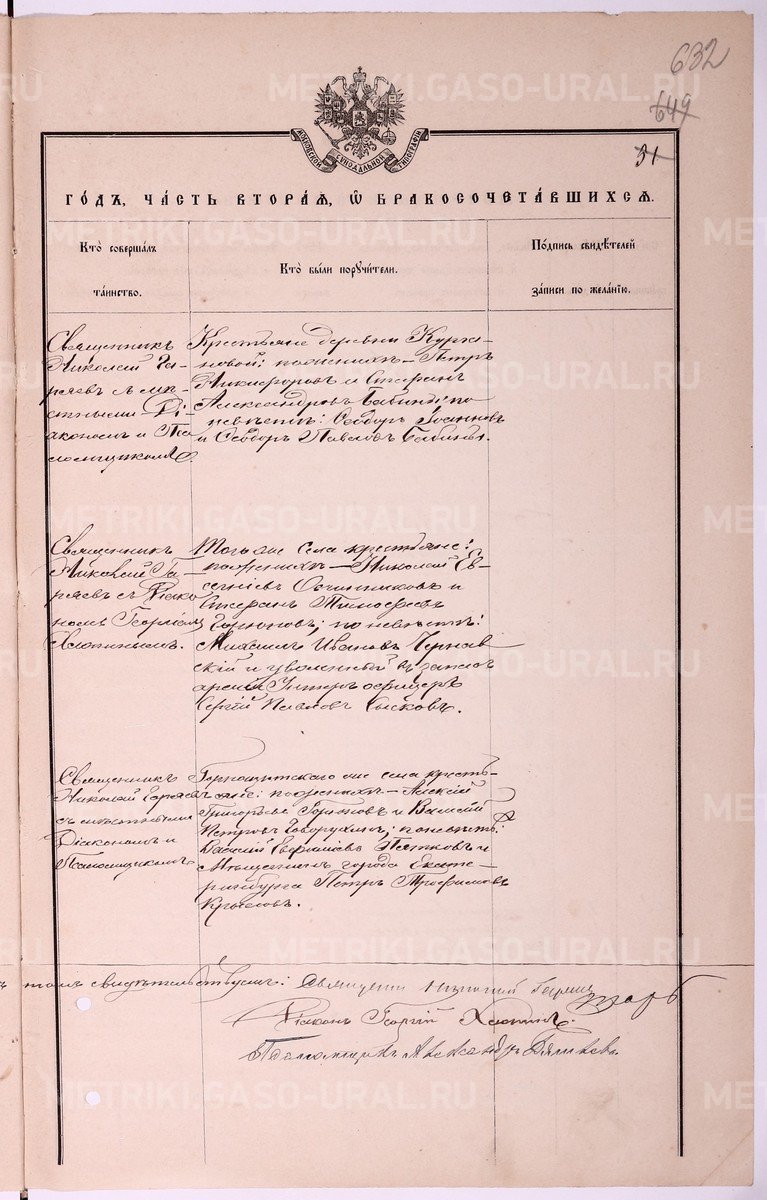 632
649
31
МОСКОВСКОЙ СѴНОДАЛЬНОЙ ТИПОГРАФІИ
ГОДЪ, ЧАСТЬ ВТОРАЯ, Ѽ БРАКОСОЧЕТАВШИХСЯ.
Кто совершалъ
таинство.
Кто были поручители.
Подпись свидѣтелей
записи по желанію.
Священникъ
Николай Га-
ряевъ съ мѣ-
стными Ді-
акономъ и Пса
ломщикомъ.
Крестьяне деревни Курга-
новой: по женихѣ – Петръ
Никифоровъ и Стефанъ
Александровъ Бабины; по
невѣстѣ: Ѳеодоръ Іоанновъ
и Ѳеодоръ Павловъ Бабины.
Священникъ
Николай Га-
ряевъ съ Діако
номъ Георгіемъ
Хлопинымъ.
Того же села крестьяне:
по женихѣ – Николай Ев-
сеніевъ Овчинниковъ и
Стефанъ Тимофеевъ
Горюновъ; по невѣстѣ:
Михаилъ Ивановъ Чернав-
скій и уволенный въ запасъ
арміи Унтеръ офицеръ
Сергій Павловъ Сысковъ.
Священникъ
Николай Гаряевъ
съ мѣстными
Діакономъ и
Псаломщикомъ
Горнощитскаго же села кресть-
яне: по женихѣ – Алексій
Григорьевъ Горюновъ и Василій
Петровъ Говорухинъ; по невѣстѣ:
Василій Евфиміевъ Пятковъ и
Мѣщанинъ города Екате-
ринбурга Петръ Трофимовъ
Крыловъ.
томъ свидѣтельствуемъ: Священникъ Николай Гаряевъ
Діаконъ Георгій Хлопинъ
Псаломщикъ Александръ
METRIKI.GASO-URAL.RU